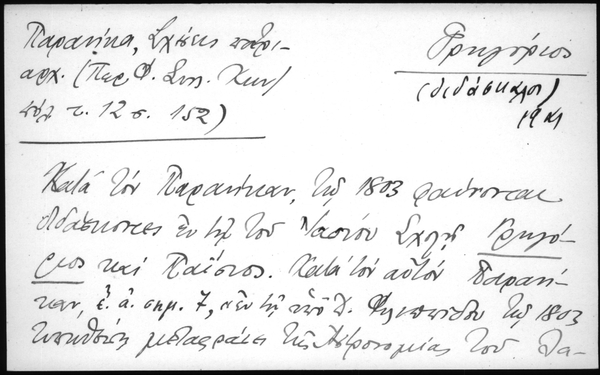 Παρανίκα, Σχέσεις πατρι-
αρχ. (Περ. Φ. Συλ. Κων/
πόλ τ. 12 σ. 152)
Γρηγόριος
(διδάσκαλοι)
19 
Κατά τόν Παρανίκαν, τῷ 1803 φαίνονται
διδάσκοντες ἐν τῇ τοῦ Ἰασίου Σχολῇ Γρηγό-
ριος καί Παΐσιος. Κατά τόν αὐτόν Παρανί-
καν, ἔ. ἀ. σημ. 7, ἐν τῇ ὑπό Δ. Φιλιππίδου τῷ 1803
τυπωθείσῃ μεταφράσει τῆς Ἀστρονομίας τοῦ Λα-